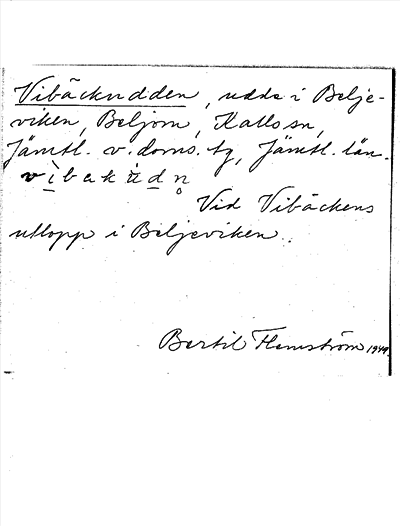 Vibäckudden, udde i Belje-
viken, Beljom, Kall sn,
Jämtl. v. doms. tg, Jämtl. län.
Vid Vibäckens
utlopp i Beljeviken.
Bertil Flemström 1949.